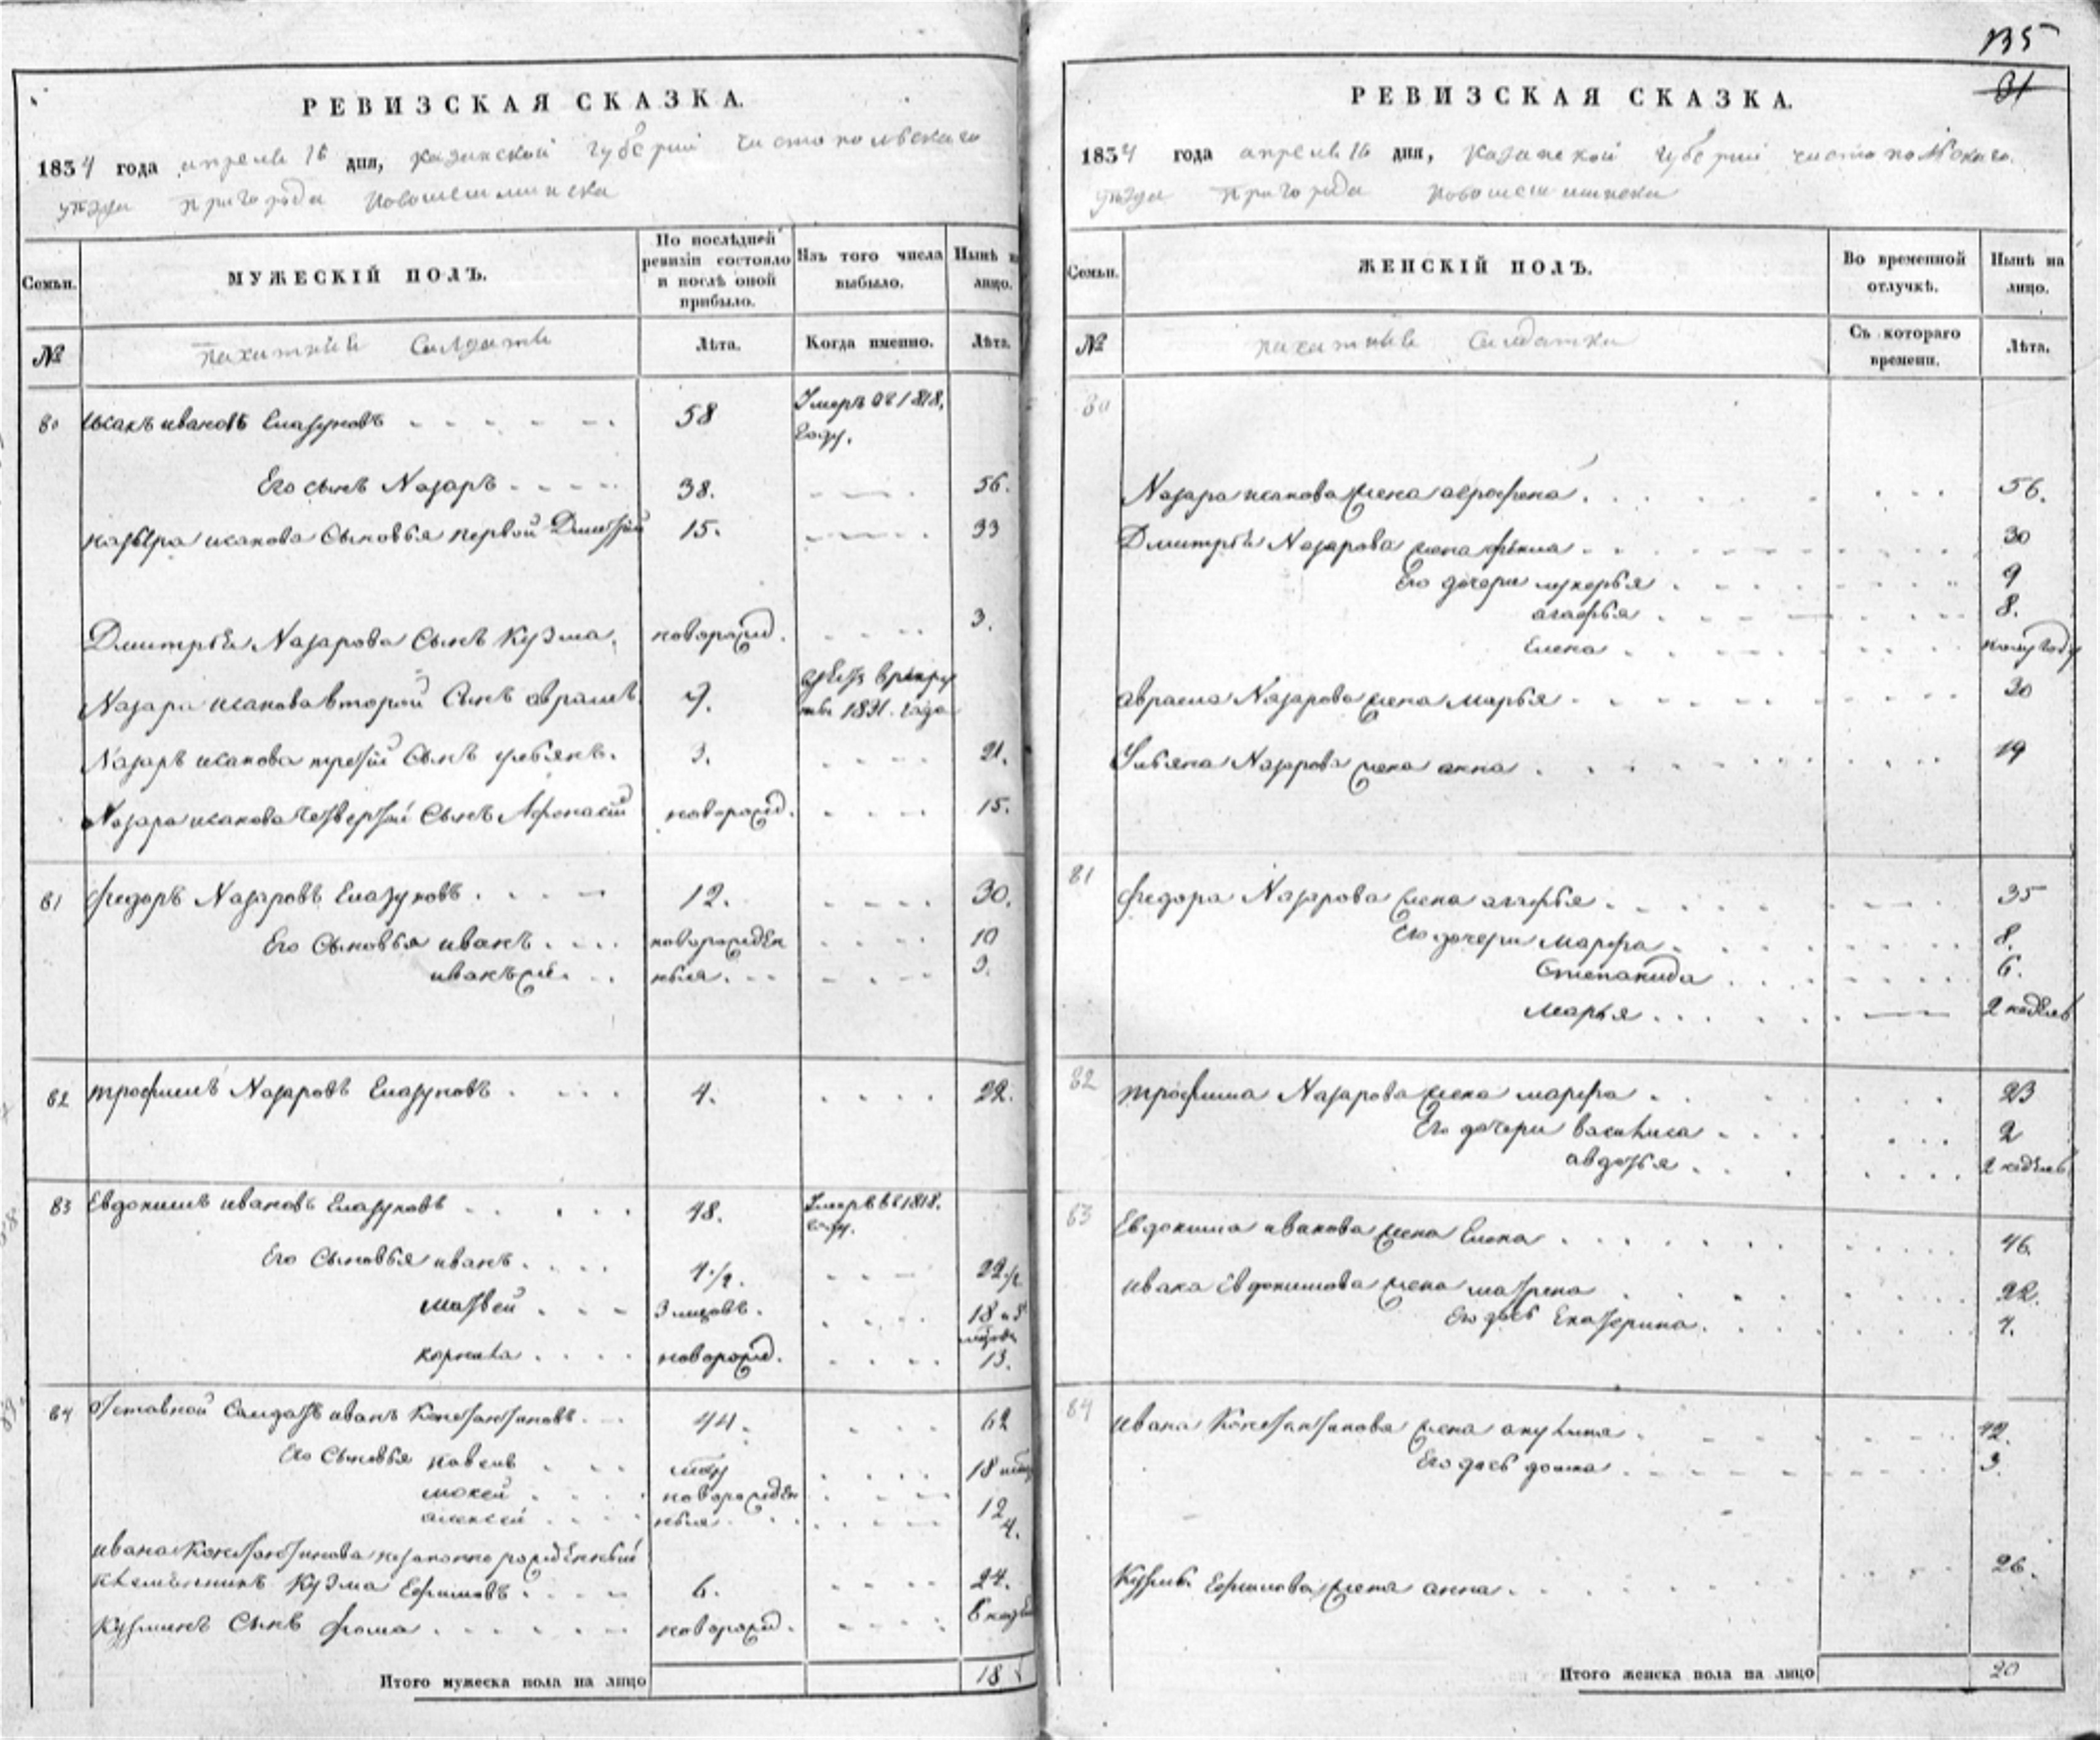 135
31
РЕВИЗСКАЯ СКАЗКА.
1834 года апреля 16 дня, казанской губернii чистопольскаго
уѣзда пригорода новошешминска
Семьи. МУЖЕСКIЙ ПОЛЪ. По послѣдней ревизiи состояло и послѣ оной прибыло. Изъ того числа выбыло. Нынѣ на лицо.
№ пахатные Салдаты Лѣта. Когда именно. Лѣта.
80 Исакъ ивановъ Елазуковъ 58 Умеръ въ 1818. году.
Его сынъ Назаръ 38. 56.
назара исакова Сыновья первой Дмитрiй 15. 33
Дмитрѣя Назарова Сынъ Кузма. новорожд. 3.
Назара исакова второй Сынъ аврамъ 9. отдан в рекру ты 1831. года
Назаръ исакова третiй Сынъ ульянъ. 3. 21.
Назара исакова четвертой Сынъ Афонасiй новорожд. 15.
81 федоръ Назаровъ Елазуковъ 12. 30.
Его Сыновья иванъ новорожден 10
иванъ же ныя 3.
82 трофимъ Назаровъ Елазуковъ 4. 22.
83 Евдокимъ ивановъ Елазуковъ 48. Умеръ въ 1818. году.
Его Сыновья иванъ 4 1/2. 22 1/2
матвей 3 мцовъ. 18 и 3 мцовъ
корнила новорожд. 13.
84 Отставной Салдатъ иванъ Константиновъ 44. 62
Его Сыновья павелъ 18
мокей новорожден 12
алексей ныя 4.
ивана Константинова незаконно рожденный
племянникъ Кузма Ефимовъ 6. 24.
Кузминъ Сынъ фома новорожд. 6 недѣл
Итого мужеска пола на лицо 18
РЕВИЗСКАЯ СКАЗКА.
1834 года апреля 16 дня, казанской губернii чистопольскаго
уѣзда пригорода новошешминска
Семьи. ЖЕНСКIЙ ПОЛЪ. Во временной отлучкѣ. Нынѣ на лицо.
№ пахатные Салдатки Съ котораго времени. Лѣта.
80
Назара исакова жена аграфена 56.
Дмитрѣя Назарова жена фекла 30
Его дочери лукерья 9
агафья 8.
Елена полугоду
аврама Назарова жена марья 30
Ульяна Назарова жена анна 19
81 федора Назарова жена агафья 35
Его дочери марфа 8.
Степанида 6.
марья 2 недѣль
82 трофима Назарова жена марфа 23
Его дочери василиса 2
авдотья 2 недѣль
83 Евдокима иванова жена Елена 46.
ивана Евдокимова жена матрена 22.
Его дочь Екатерина 4.
84 ивана Константинова жена акулина 42.
Его дочь домна 3.
Кузмы Ефимова жена анна 26.
Итого женска пола на лицо 20